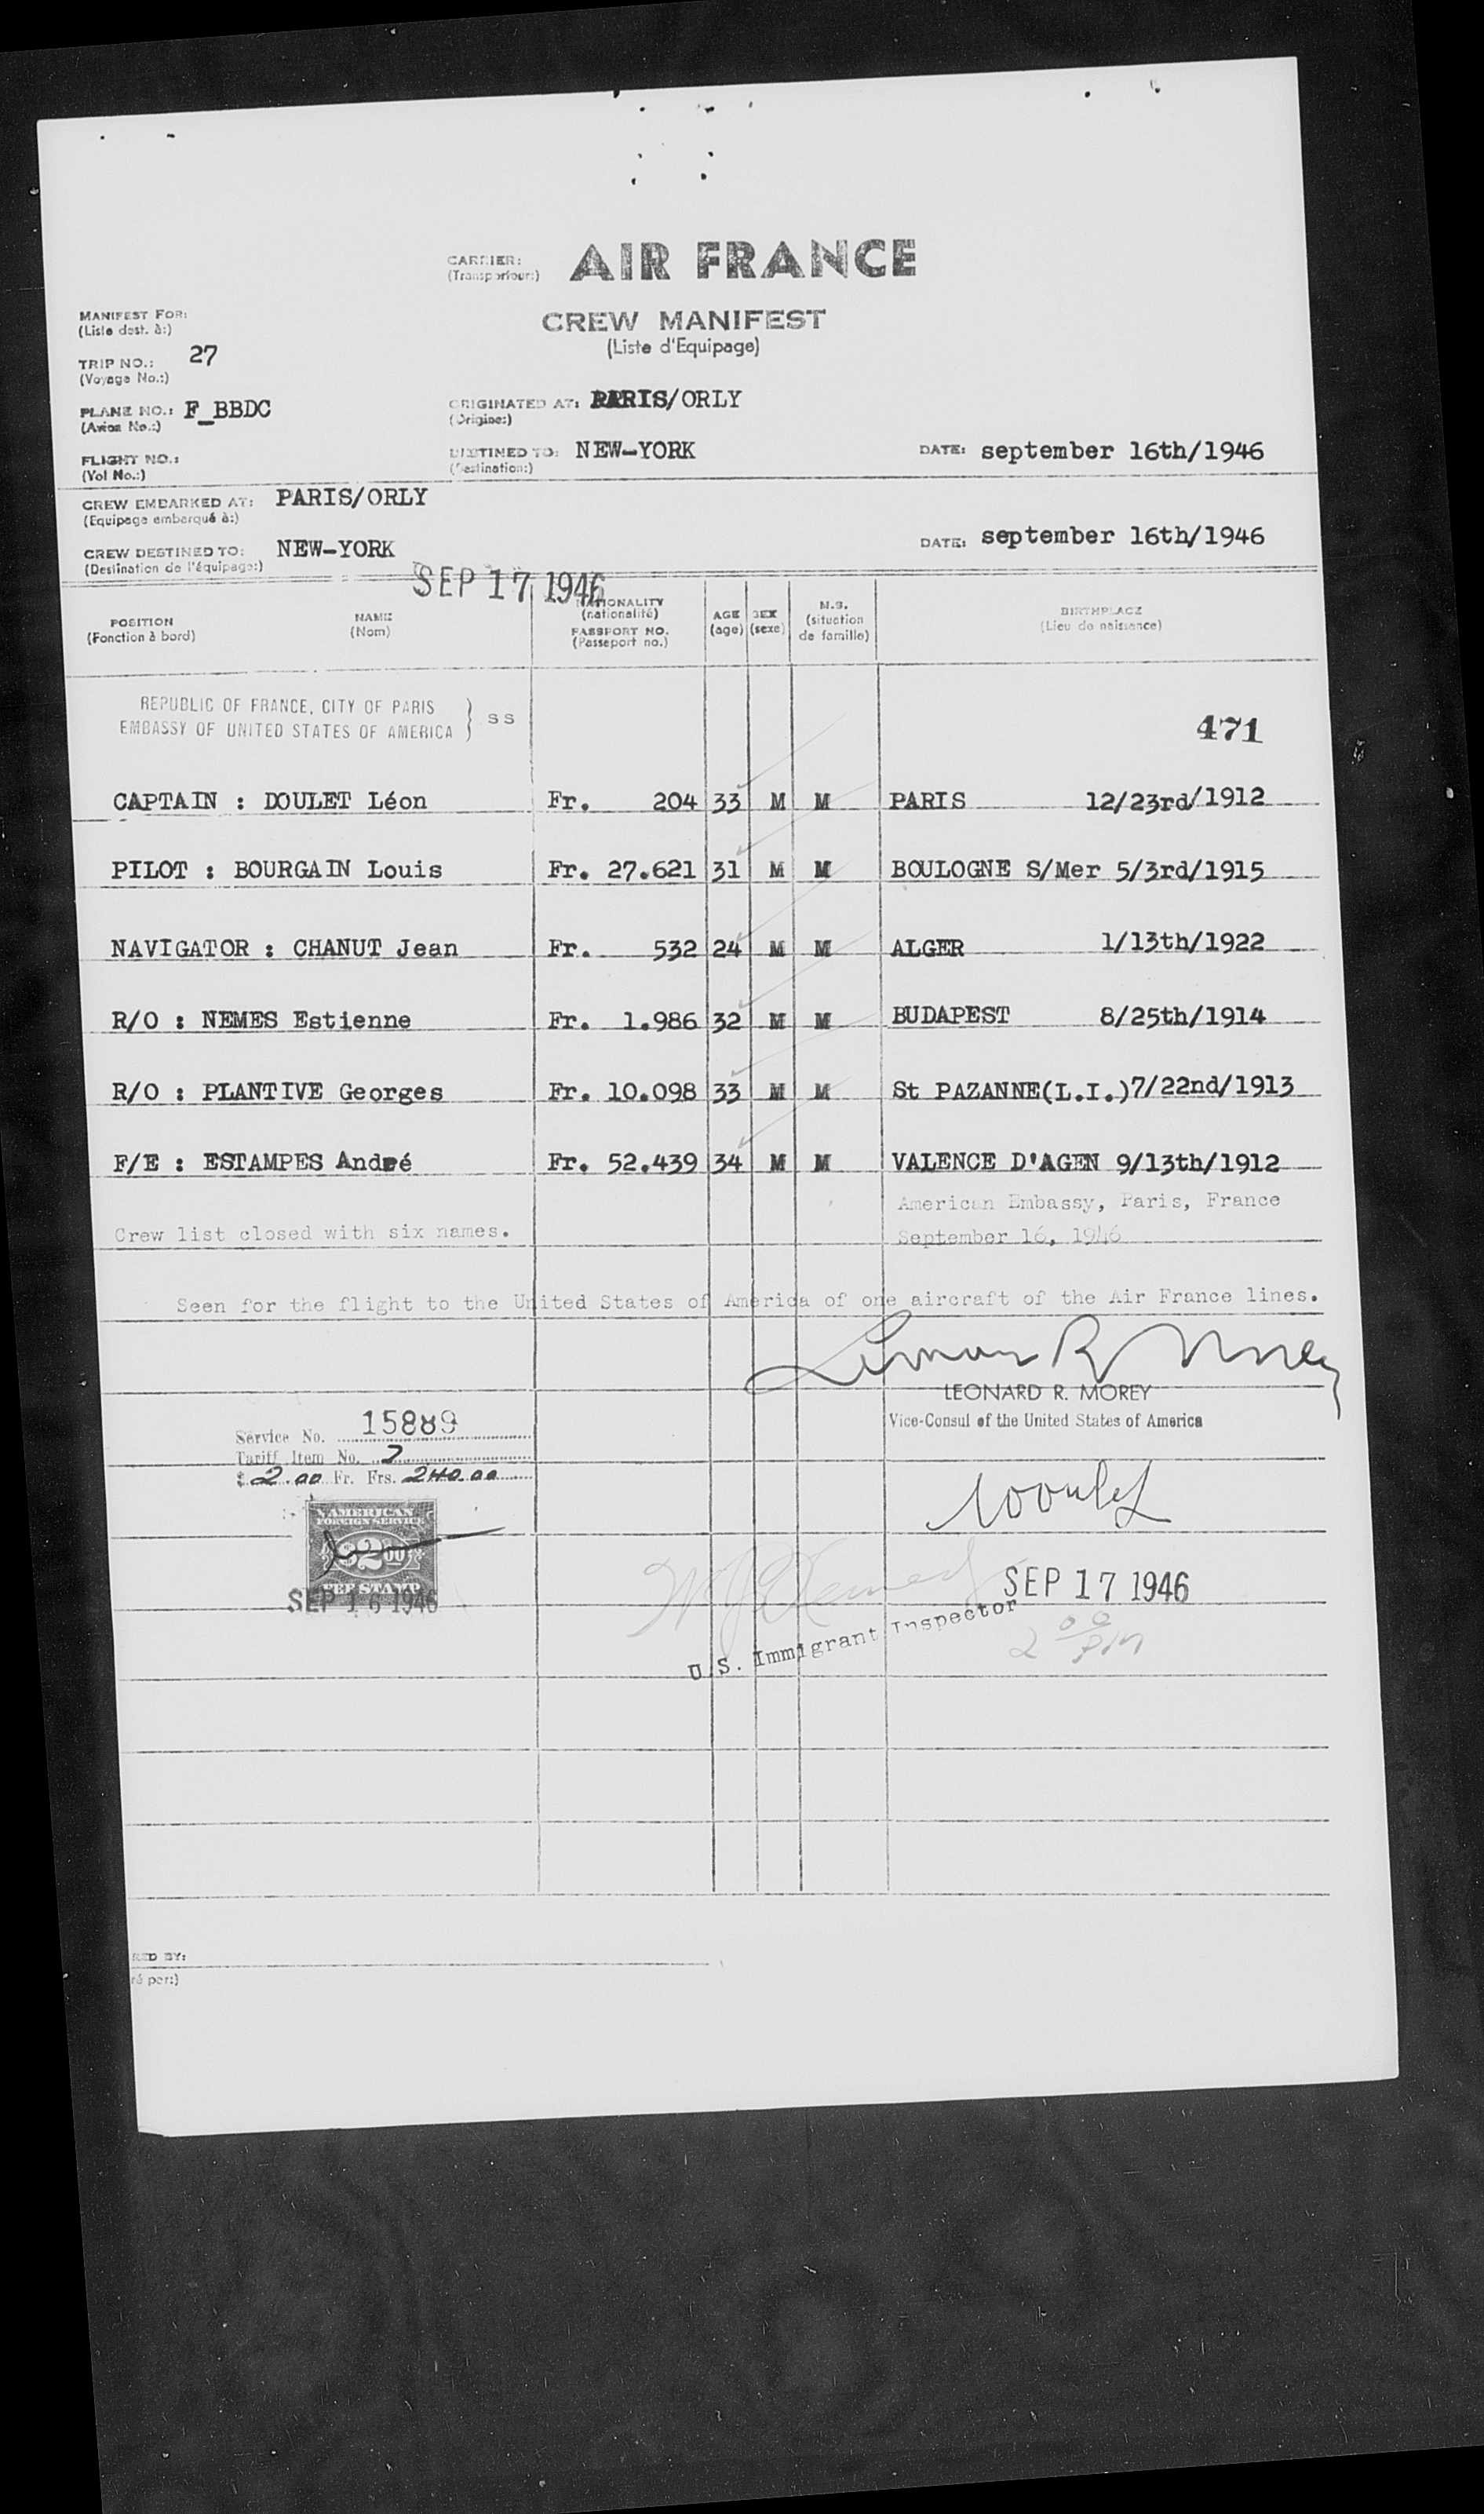 CARRIER: AIR FRANCE
(Transporteur:)
MANIFEST FOR:
(Liste dest. à:)
CREW MANIFEST
(Liste d'Equipage)
TRIP NO.: 27
(Voyage No.:)
PLANE NO.: F_BBDC
(Avion No.:)
ORIGINATED AT: PARIS/ORLY
(Origine:)
FLIGHT NO.:
(Vol No.:)
DESTINED TO: NEW-YORK
(Destination:)
DATE: september 16th/1946
CREW EMBARKED AT: PARIS/ORLY
(Equipage embarqué à:)
CREW DESTINED TO: NEW-YORK
(Destination de l'équipage:)
DATE: september 16th/1946
SEP 17 1946
POSITION
(Fonction à bord)
NAME
(Nom)
NATIONALITY
(nationalité)
PASSPORT NO.
(Passeport no.)
AGE
(age)
SEX
(sexe)
M.S.
(situation
de famille)
BIRTHPLACE
(Lieu de naissance)
REPUBLIC OF FRANCE, CITY OF PARIS
EMBASSY OF UNITED STATES OF AMERICA } SS
471
CAPTAIN : DOULET Léon Fr. 204 33 M M PARIS 12/23rd/1912
PILOT : BOURGAIN Louis Fr. 27.621 31 M M BOULOGNE S/Mer 5/3rd/1915
NAVIGATOR : CHANUT Jean Fr. 532 24 M M ALGER 1/13th/1922
R/O : NEMES Estienne Fr. 1.986 32 M M BUDAPEST 8/25th/1914
R/O : PLANTIVE Georges Fr. 10.098 33 M M St PAZANNE(L.I.)7/22nd/1913
F/E : ESTAMPES André Fr. 52.439 34 M M VALENCE D'AGEN 9/13th/1912
American Embassy, Paris, France
Crew list closed with six names.
September 16, 1946
Seen for the flight to the United States of America of one aircraft of the Air France lines.
LEONARD R. MOREY
Vice-Consul of the United States of America
Service No. 15889
Tariff Item No. 7
$ 2.00 Fr. Frs. 240.00
AMERICAN
FOREIGN SERVICE
$2 00
FEE STAMP
SEP 16 1946
SEP 17 1946
U.S. Immigrant Inspector
2 00 PM
RED BY:
ré par:)